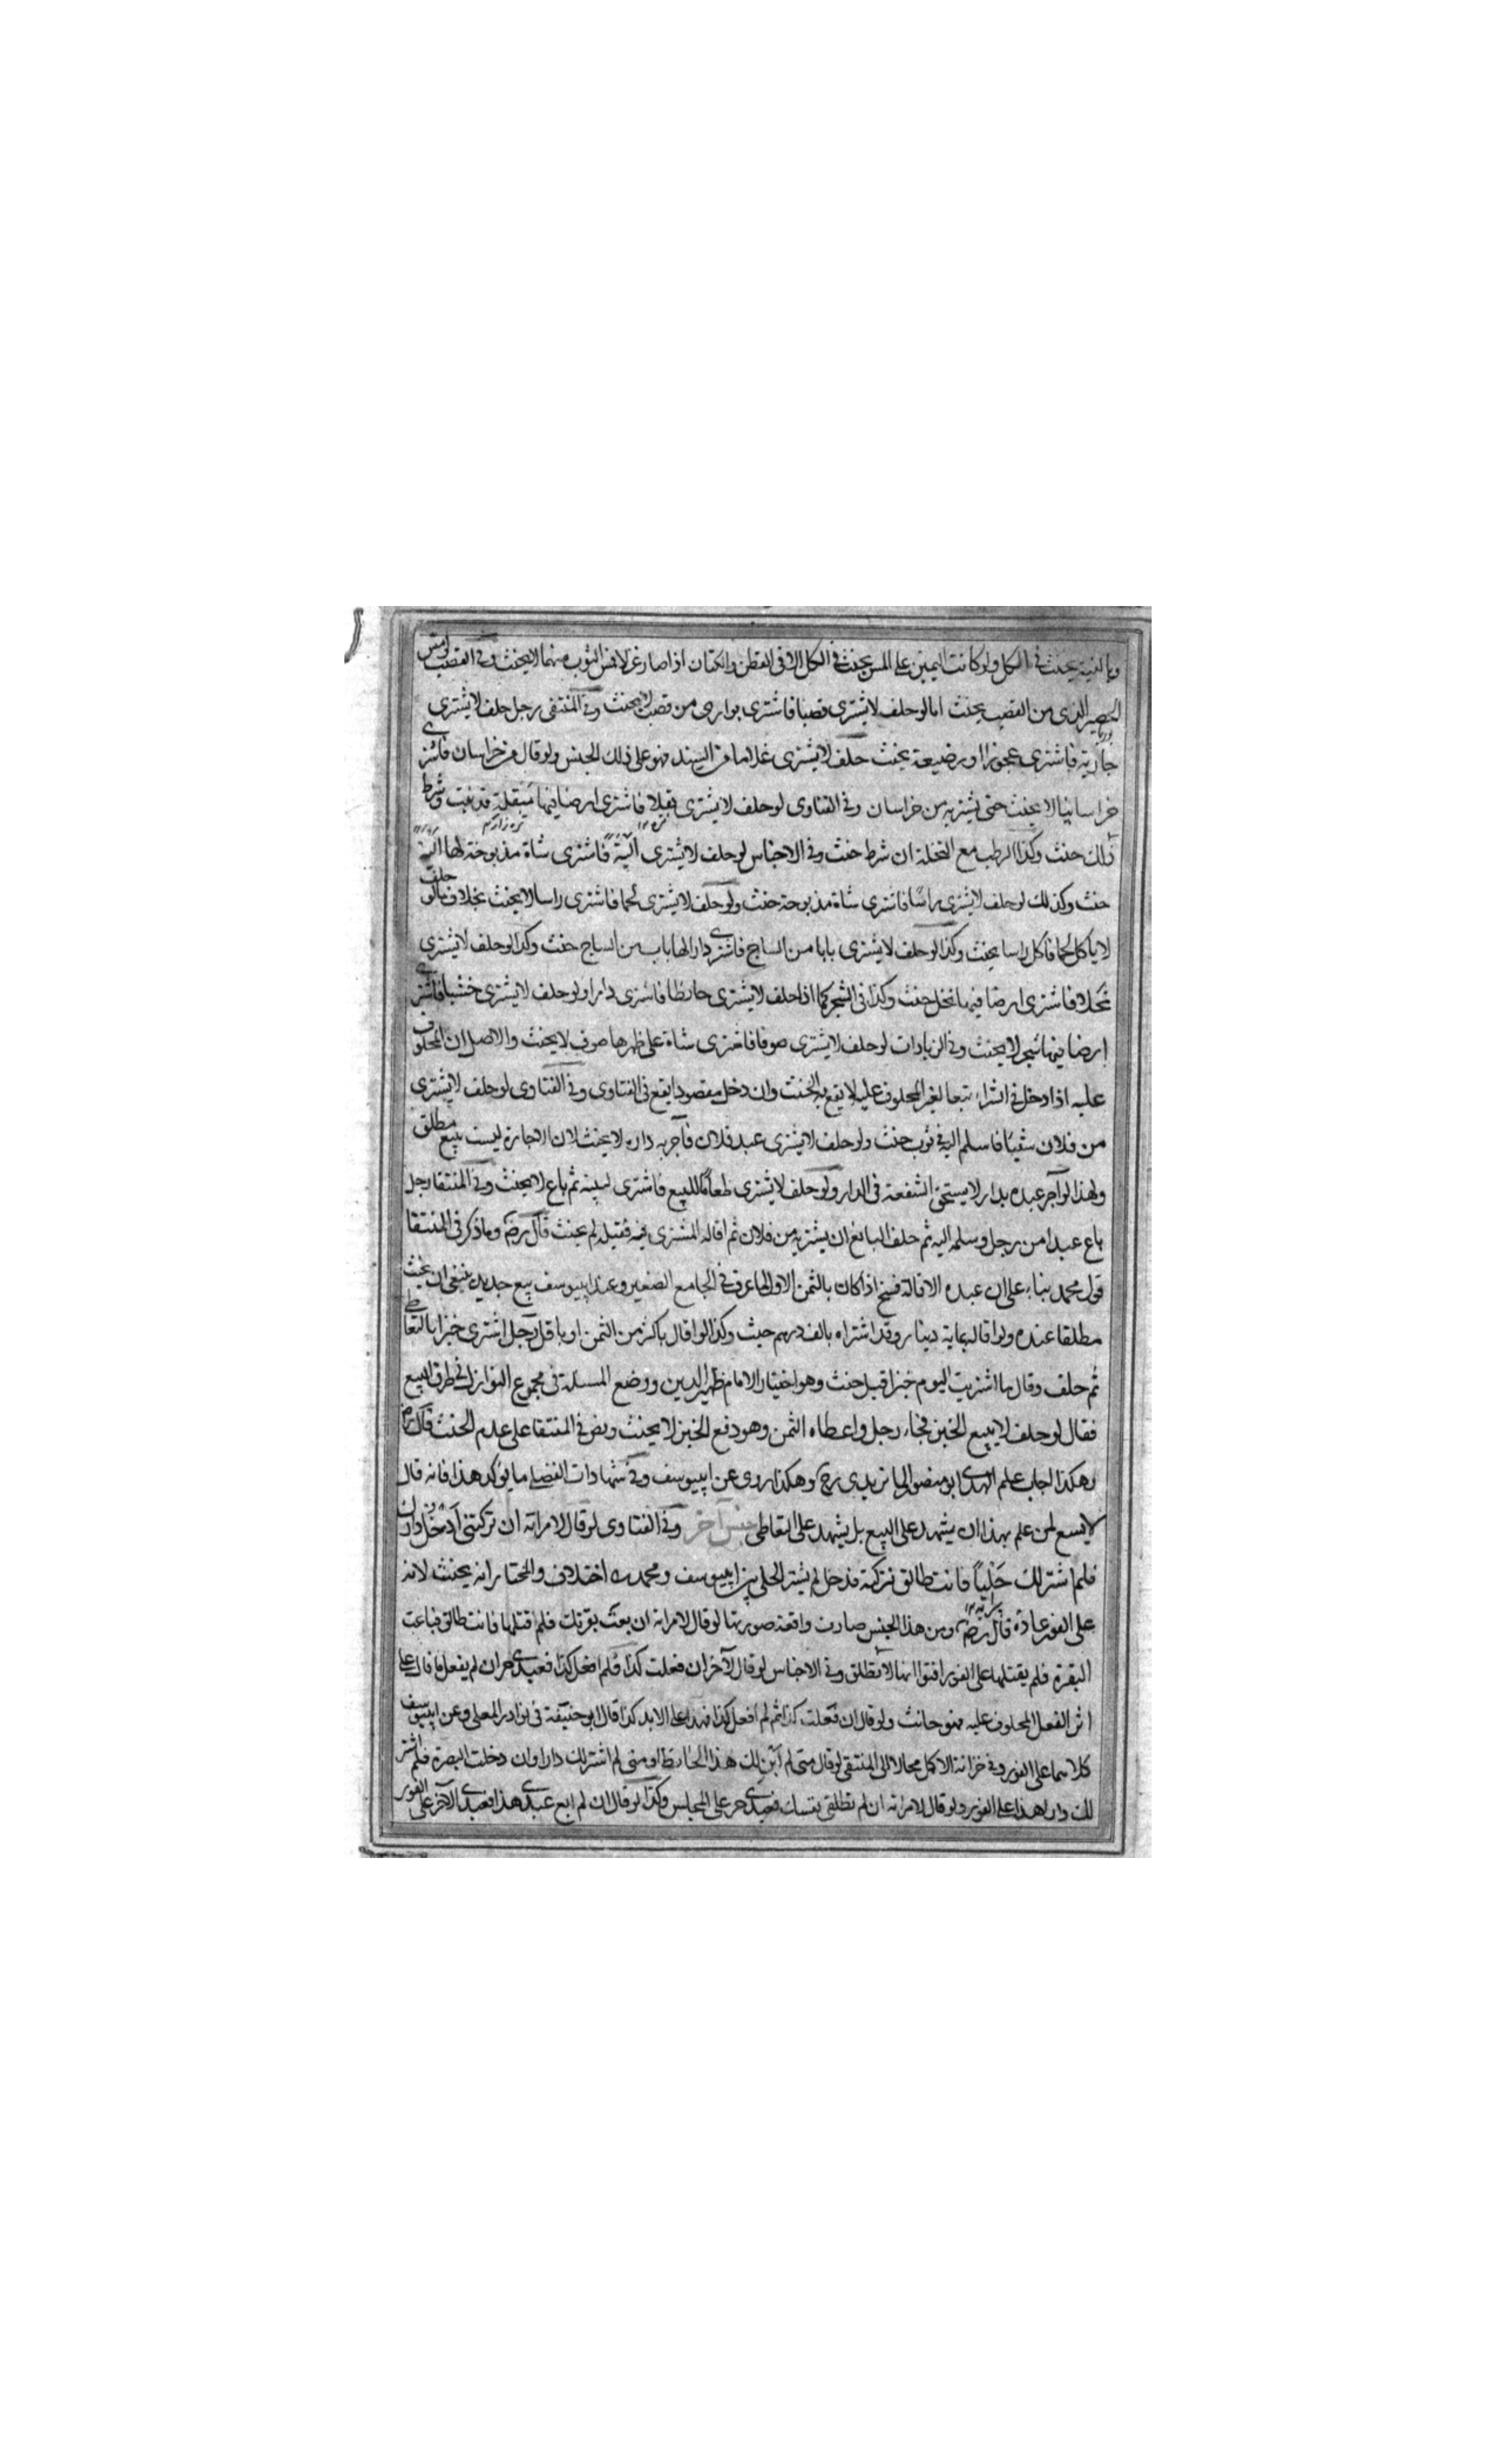 وبالنية يحنث في الكل ولو كانت اليمين على المس يحنث في الكل الا في القطن والكتان اذا صار غزلا فمس الثوب منهما لا يحنث وفي القصب لو مس
الحصير الذي من القصب يحنث اما لو حلف لا يشتري قصبا فاشترى بواري من قصب لا يحنث وفي المنتقى رجل حلف لا يشتري
جارية فاشترى عجوزا او رضيعة يحنث حلف لا يشتري غلاما من السند فهو على ذلك الجنس ولو قال من خراسان فاشترى
خراسانيا لا يحنث حتى يشتريه من خراسان وفي الفتاوى لو حلف لا يشتري بقلا فاشترى ارضا فيها مبقلة قد نبتت وشرط
ذلك حنث وكذا الرطب مع النخلة ان شرط حنث وفي الاجناس لو حلف لا يشتري الية فاشترى شاة مذبوحة لها الية
حنث وكذلك لو حلف لا يشتري راسا فاشترى شاة مذبوحة حنث ولو حلف لا يشتري لحما فاشترى راسا لا يحنث بخلاف ما لو حلف
لا ياكل لحما فاكل راسا يحنث وكذا لو حلف لا يشتري بابا من الساج فاشترى دارا لها باب من الساج حنث وكذا لو حلف لا يشتري
نخلا فاشترى ارضا فيها نخل حنث وكذا في الشجر كما اذا حلف لا يشتري حائطا فاشترى دارا ولو حلف لا يشتري خشبا فاشترى
ارضا فيها شجر لا يحنث وفي الزيادات لو حلف لا يشتري صوفا فاشترى شاة على ظهرها صوف لا يحنث والاصل ان المحلوف
عليه اذا دخل في الشراء تبعا لغير المحلوف عليه لا يقع به الحنث وان دخل مقصودا يقع في الفتاوى وفي الفتاوى لو حلف لا يشتري
من فلان شيئا فاسلم اليه في ثوب حنث ولو حلف لا يشتري عبد فلان فآجر به داره لا يحنث لان الاجارة ليست ببيع مطلق
ولهذا لو آجر عبده بدار لا يستحق الشفعة في الدار ولو حلف لا يشتري طعاما للبيع فاشترى لبيته ثم باع لا يحنث وفي المنتقا رجل
باع عبدا من رجل وسلمه اليه ثم حلف البائع ان يشتريه من فلان ثم اقاله المشتري فيه فقبله لم يحنث قال رضه وما ذكر في المنتقا
قول محمد بناء على ان عبده الاقالة فسخ اذا كان بالثمن الاول لما عرف في الجامع الصغير وعند ابييوسف بيع جديد ينبغي ان يحنث
مطلقا عنده ولو اقاله بماية دينار وقد اشتراه بالف درهم حنث وكذا لو اقال باكثر من الثمن او باقل رجل اشترى خبزا بالتعاطي
ثم حلف وقال ما اشتريت اليوم خبزا قيل حنث وهو اختيار الامام ظهير الدين ووضع المسئلة في مجموع النوازل في طرف البيع
فقال لو حلف لا يبيع الخبز فجاء رجل واعطاه الثمن وهو دفع الخبز لا يحنث ونص في المنتقا على عدم الحنث قال رضه
وهكذا اجاب علم الهدى ابو منصور الماتريدي رح وهكذا روي عن ابييوسف وفي شهادات الفضلي ما يؤكد هذا فانه قال
لا يسع لمن علم بهذا ان يشهد على البيع بل يشهد على التعاطي جنس آخر وفي الفتاوى لو قال لامراته ان تركتني ادخل دارن
فلم اشتر لك حليا فانت طالق فتركته فدخل لم يشتر الحلي بين ابييوسف ومحمد اختلاف والمختار انه يحنث لانه
على الفور عادة قال رضه ومن هذا الجنس صارت واقعة صورتها لو قال لامراته ان بعت بقرتك فلم اقتلها فانت طالق فباعت
البقرة فلم يقتلها على الفور افتوا انها لا تطلق وفي الاجناس لو قال لآخر ان فعلت كذا فلم افعل كذا فعبدي حر ان لم يفعل ما قال على
اثر الفعل المحلوف عليه فهو حانث ولو قال ان فعلت كذا ثم لم افعل كذا فهذا على الابد كذا قال ابو حنيفة في نوادر المعلى وعن ابييوسف
كلاهما على الفور وفي خزانة الاكمل محالا الى المنتقى لو قال متى لم ابن لك هذا الحائط او متى لم اشتر لك دارا وان دخلت البصرة فلم اشتر
لك دارا هذا على الفور ولو قال لامراته ان لم تطلقي نفسك فعبدي حر على المجلس وكذا لو قال ان لم ابع عبدي هذا فعبدي الآخر على الفور